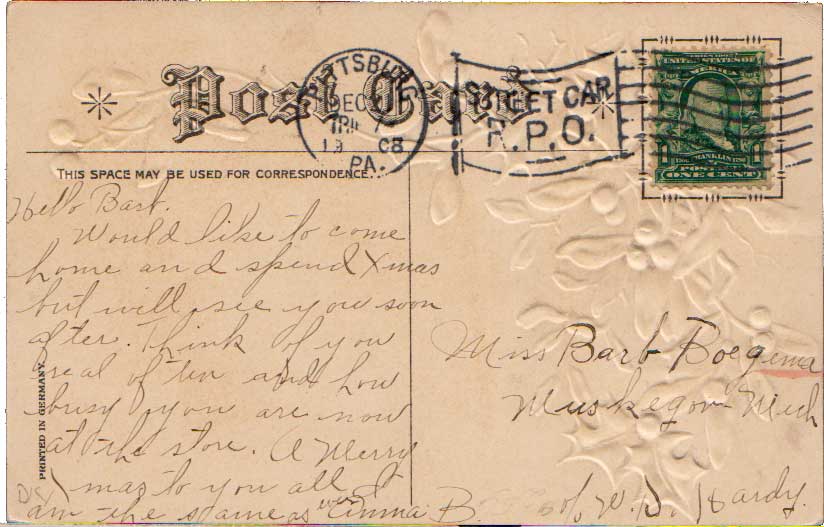 Post Card
PITTSBURG
DEC
19 08
PA.
STREET CAR
R.P.O.
SERIES 1902
UNITED STATES OF AMERICA
FRANKLIN
POSTAGE
ONE CENT
THIS SPACE MAY BE USED FOR CORRESPONDENCE.
Hello Barb.
Would like to come
home and spend Xmas
but will see you soon
after. Think of you
real often and how
busy you are now
at the store. A Merry
mas to you all. I
am the same as ever Emma B.
PRINTED IN GERMANY.
Miss Barb Boegema
Muskegon Mich
c/o W. D. Hardy.